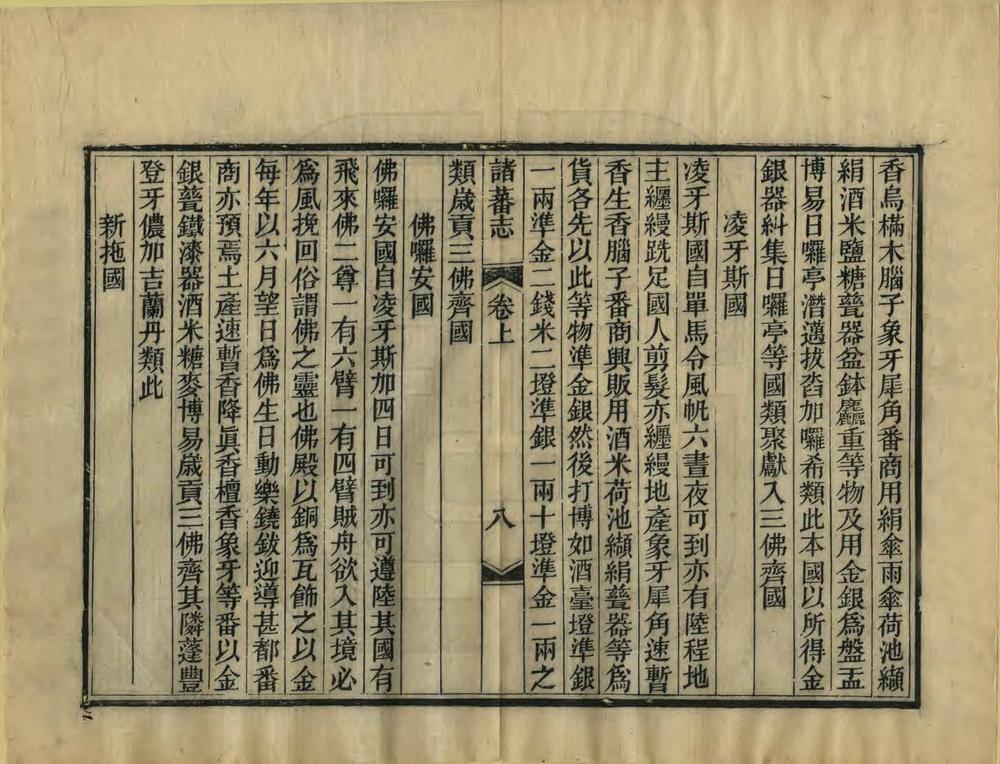 香烏樠木腦子象牙犀角番商用絹傘雨傘荷池纈
絹酒米鹽糖甆器盆鉢麤重等物及用金銀爲盤盂
博易日囉亭潛邁拔沓加囉希類此本國以所得金
銀器糾集日囉亭等國類聚獻入三佛齊國
凌牙斯國
凌牙斯國自單馬令風帆六晝夜可到亦有陸程地
主纒縵跣足國人剪髮亦纒縵地產象牙犀角速暫
香生香腦子番商興販用酒米荷池纈絹甆器等爲
貨各先以此等物準金銀然後打博如酒臺墱準銀
一兩準金二錢米二墱準銀一兩十墱準金一兩之
諸蕃志 卷上 八
類歲貢三佛齊國
佛囉安國
佛囉安國自凌牙斯加四日可到亦可遵陸其國有
飛來佛二尊一有六臂一有四臂賊舟欲入其境必
爲風挽回俗謂佛之靈也佛殿以銅爲瓦飾之以金
每年以六月望日爲佛生日動樂鐃鈸迎導甚都番
商亦預焉土產速暫香降眞香檀香象牙等番以金
銀甆鐵漆器酒米糖麥博易歲貢三佛齊其隣蓬豐
登牙儂加吉蘭丹類此
新拖國